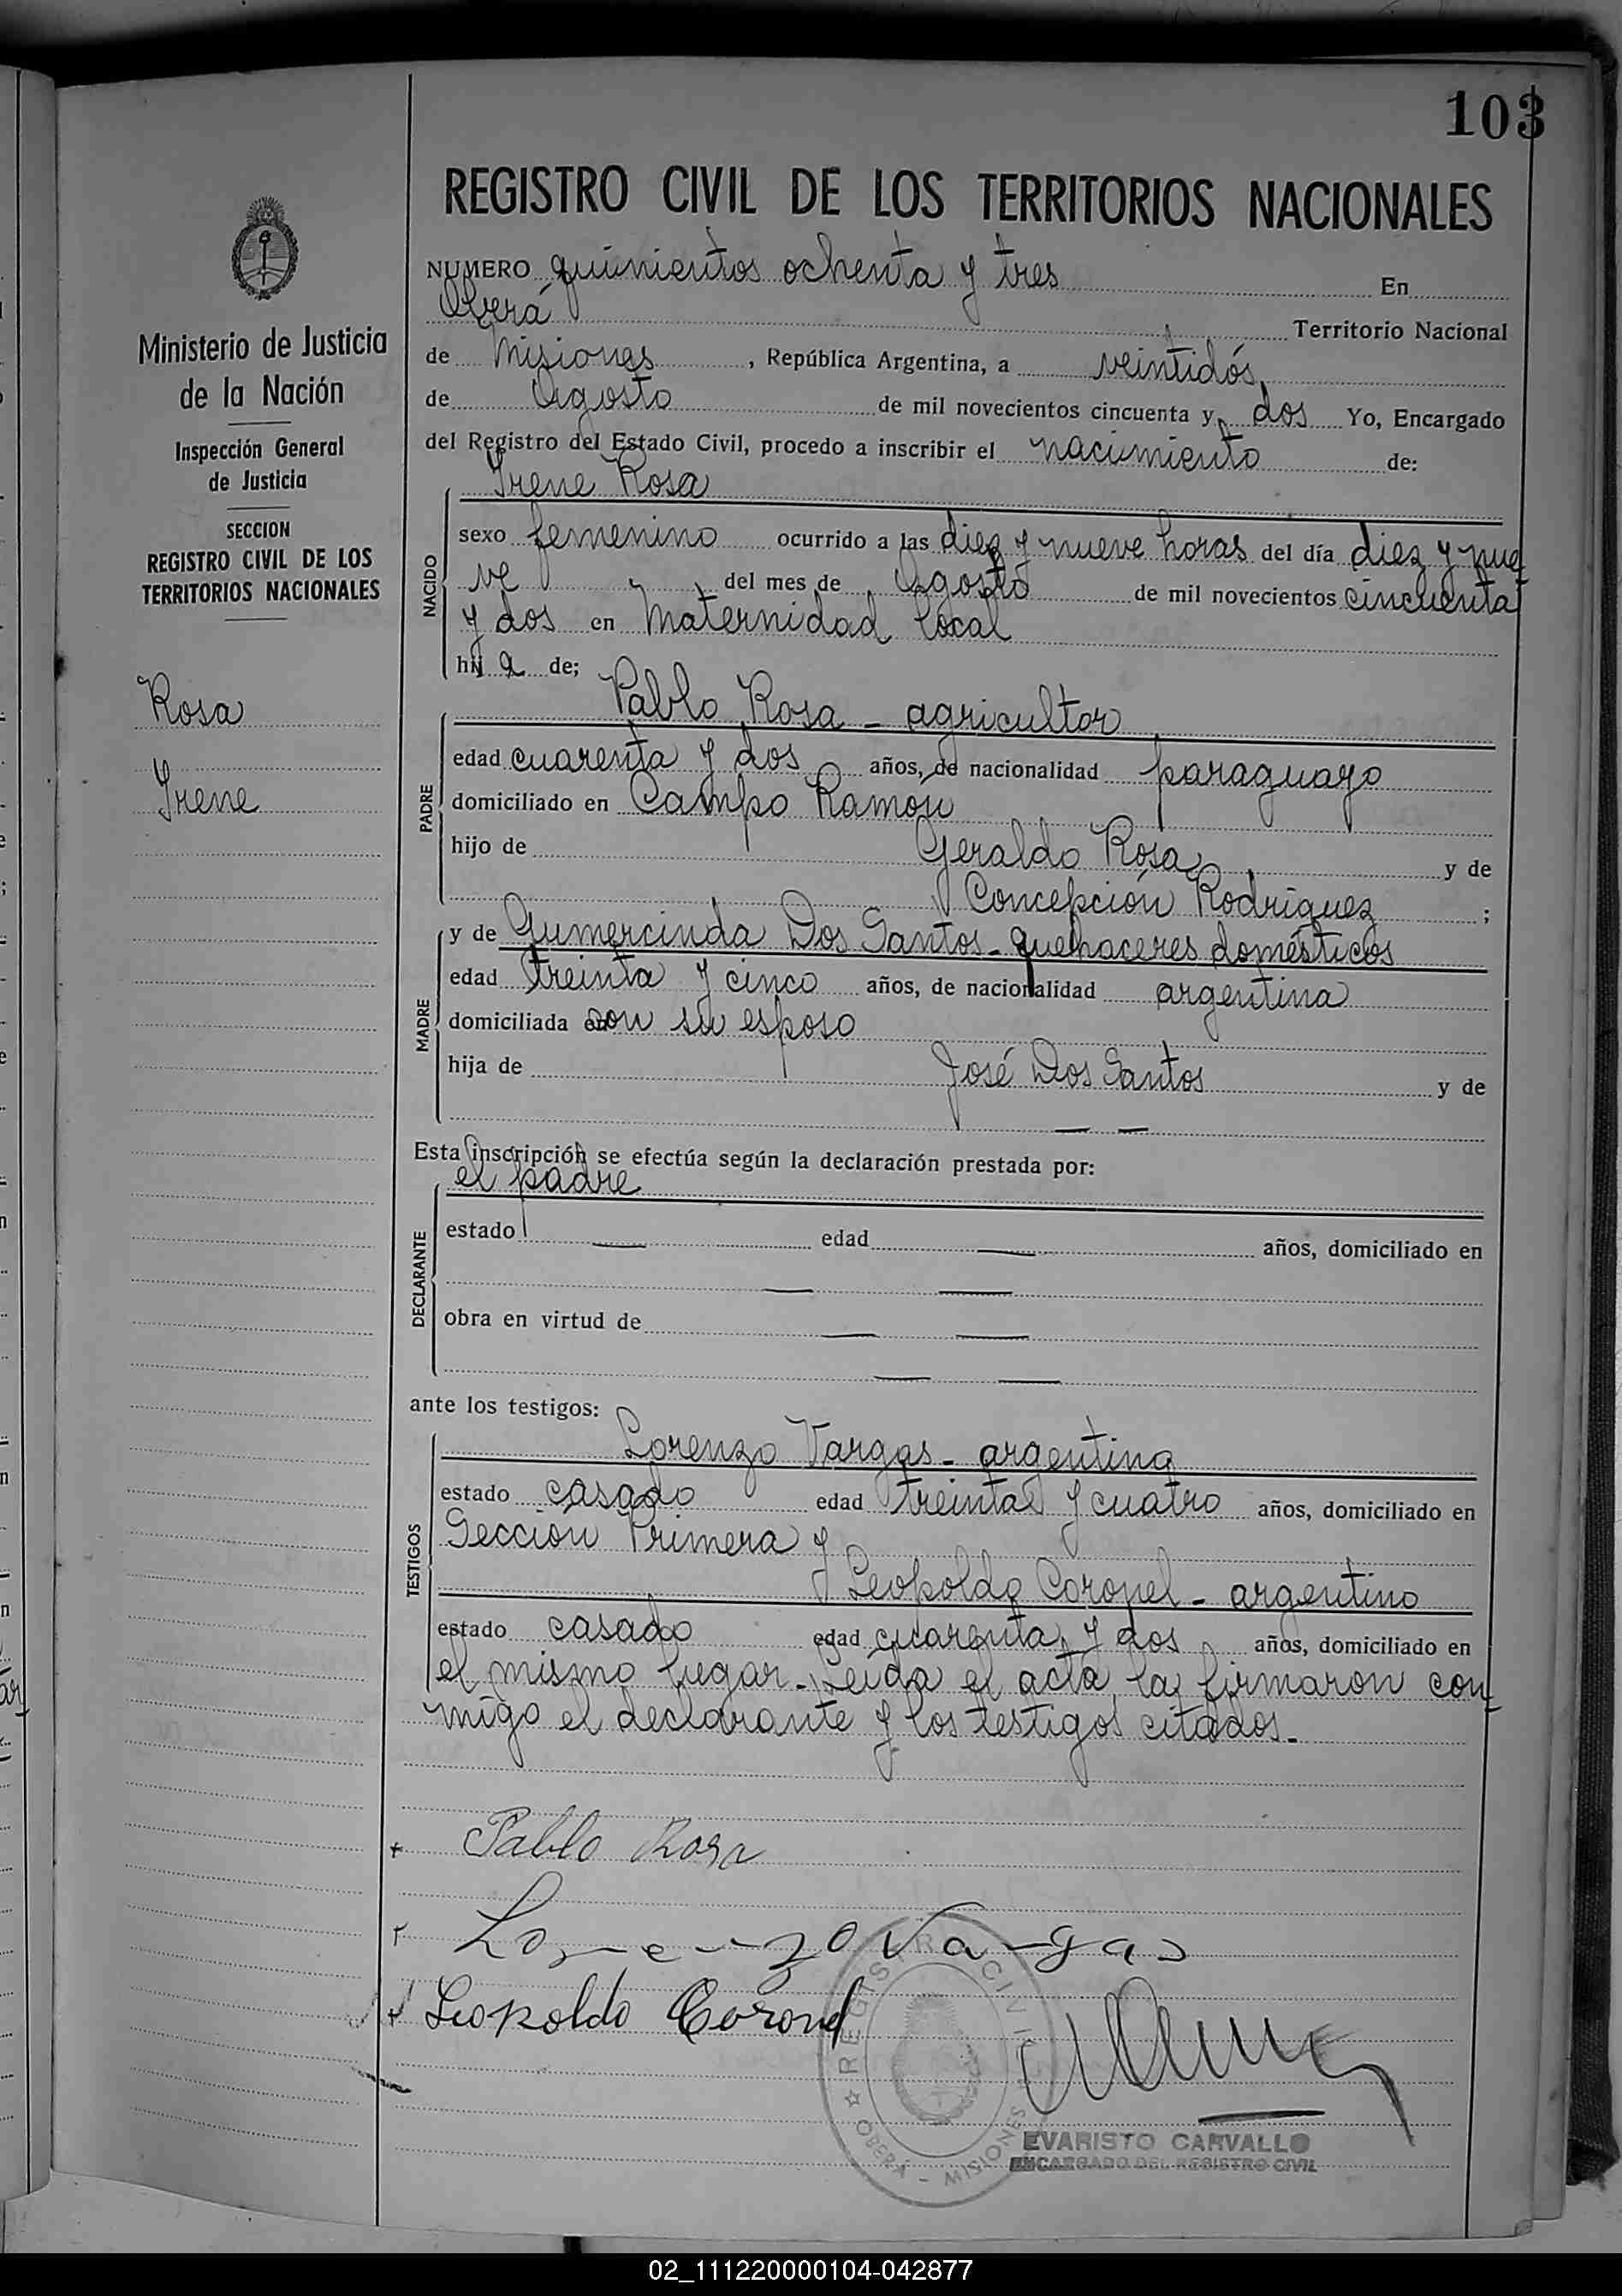 103
REGISTRO CIVIL DE LOS TERRITORIOS NACIONALES
Ministerio de Justicia
de la Nación
Inspección General
de Justicia
SECCION
REGISTRO CIVIL DE LOS
TERRITORIOS NACIONALES
Rosa
Irene
NUMERO quinientos ochenta y tres En
Oberá Territorio Nacional
de Misiones, República Argentina, a veintidós
de Agosto de mil novecientos cincuenta y dos Yo, Encargado
del Registro del Estado Civil, procedo a inscribir el nacimiento de:
NACIDO
Irene Rosa
sexo femenino ocurrido a las diez y nueve horas del día diez y nue
ve del mes de Agosto de mil novecientos cincuenta
y dos en Maternidad local
hij a de;
PADRE
Pablo Rosa - agricultor
edad cuarenta y dos años, de nacionalidad paraguayo
domiciliado en Campo Ramón
hijo de Geraldo Rosa y de
Concepción Rodríguez ;
MADRE
y de Gumercinda Dos Santos - quehaceres domésticos
edad treinta y cinco años, de nacionalidad argentina
domiciliada con su esposo
hija de José Dos Santos y de
— —
Esta inscripción se efectúa según la declaración prestada por:
DECLARANTE
el padre
estado — edad — años, domiciliado en
— —
obra en virtud de — —
— —
ante los testigos:
TESTIGOS
Lorenzo Vargas - argentino
estado casado edad treinta y cuatro años, domiciliado en
Sección Primera y
Leopoldo Coronel - argentino
estado casado edad cuarenta y dos años, domiciliado en
el mismo lugar. Leída el acta, la firmaron con-
migo el declarante y los testigos citados.-
Pablo Rosa
Lorenzo Vargas
Leopoldo Coronel
REGISTRO CIVIL
OBERÁ - MISIONES
EVARISTO CARVALLO
ENCARGADO DEL REGISTRO CIVIL
02_111220000104-042877